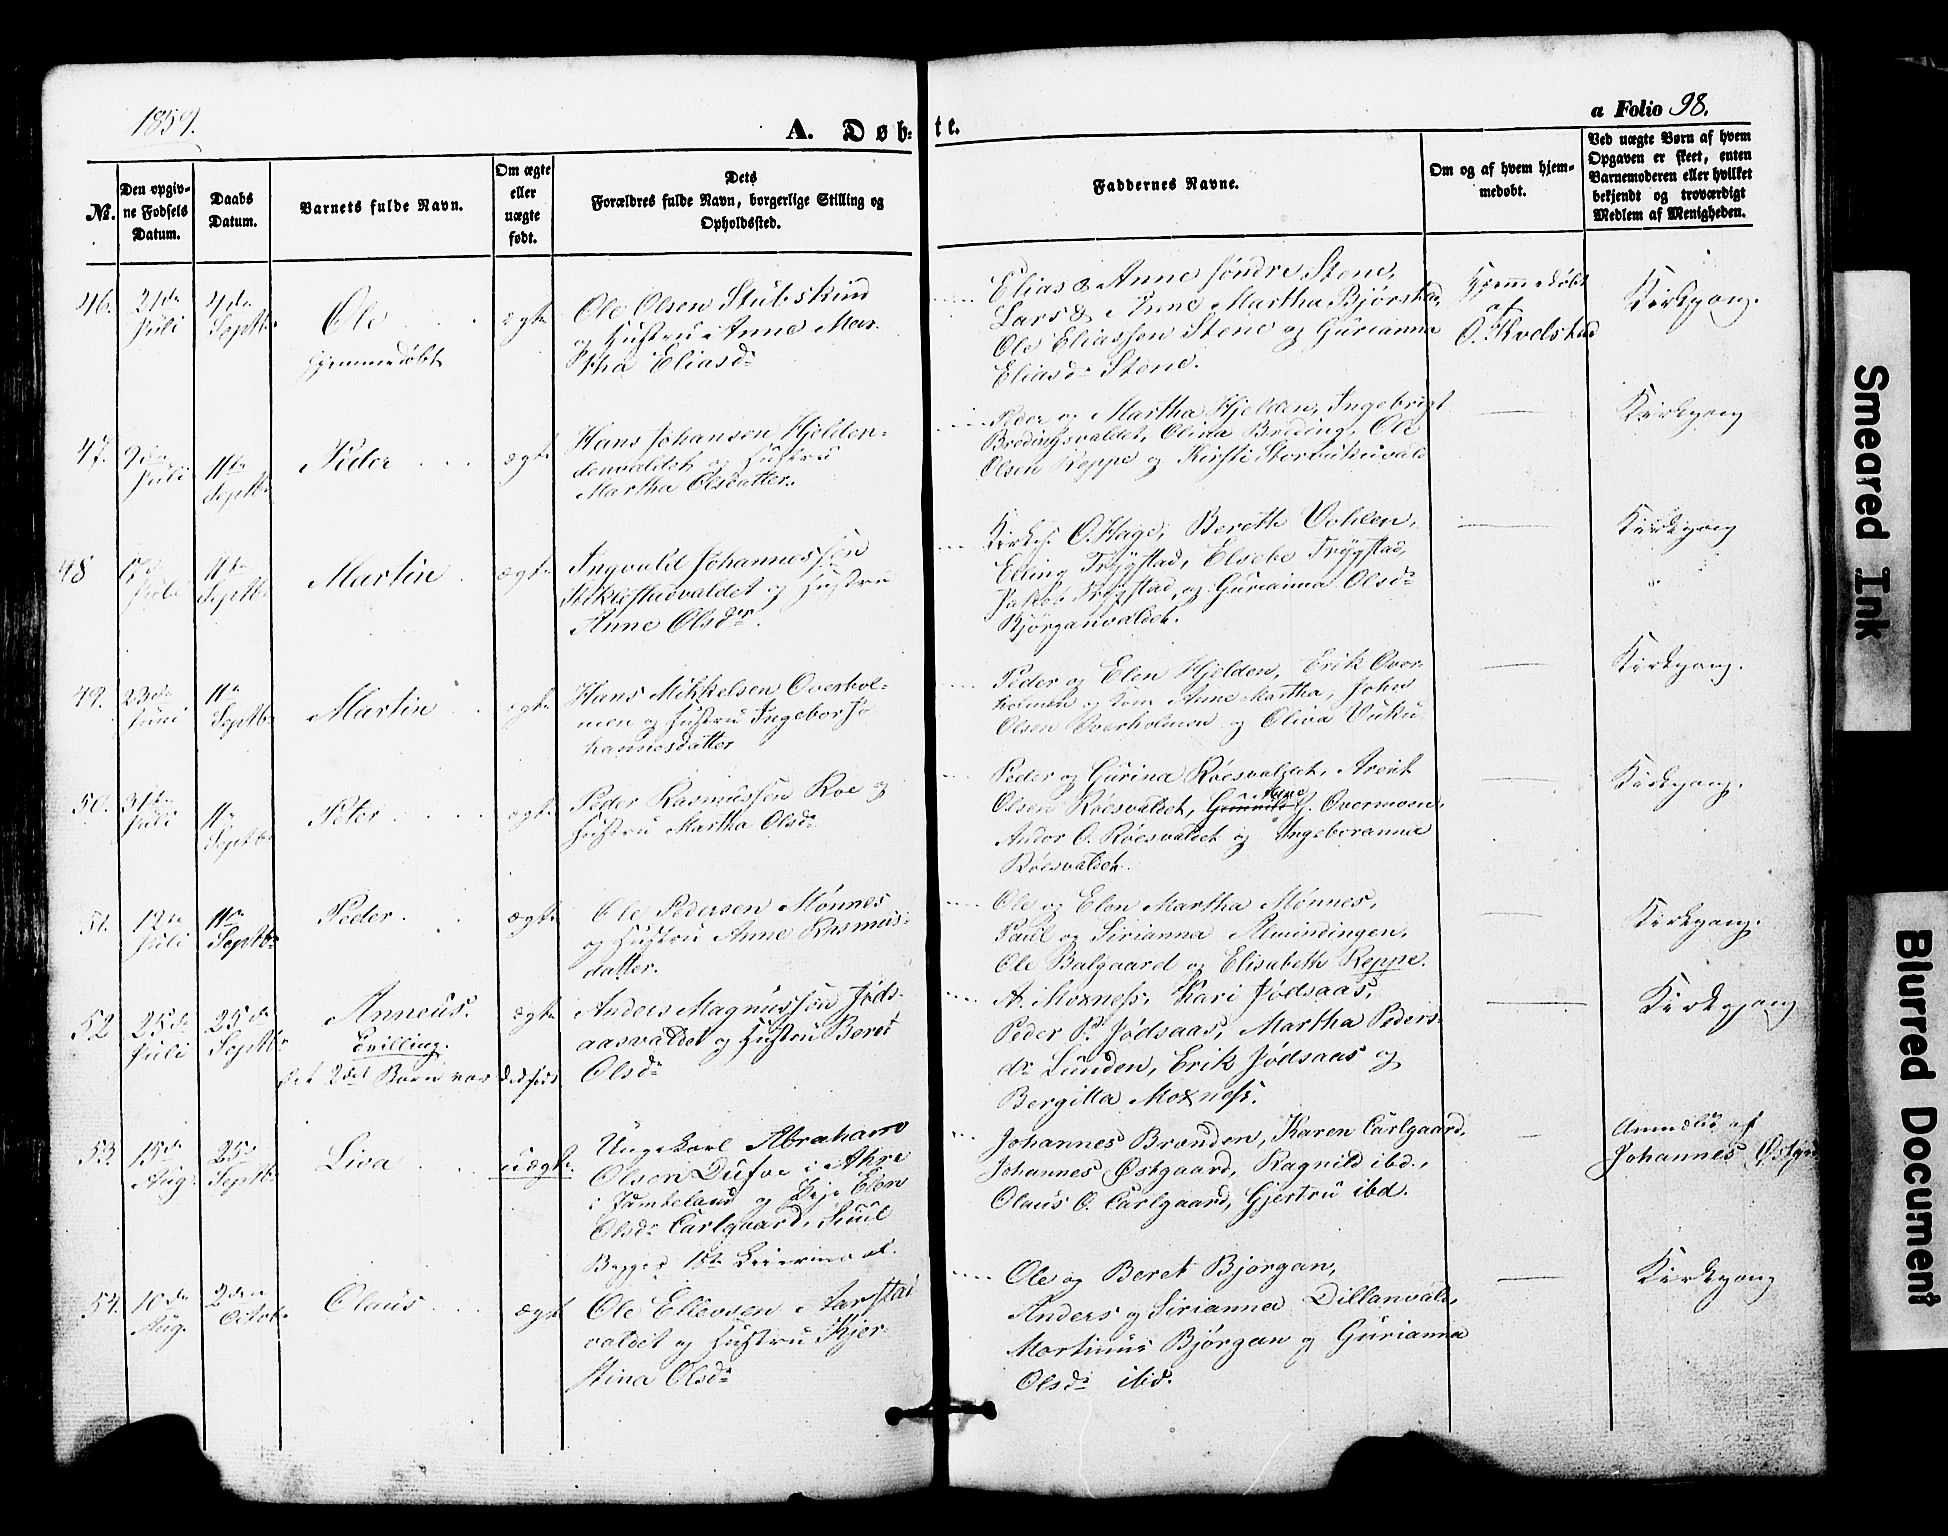 1859.
A. Døbte.
a Folio 98.
№.
Den opgivne Fødsels Datum.
Daabs Datum.
Barnets fulde Navn.
Om ægte eller uægte født.
Dets Forældres fulde Navn, borgerlige Stilling og Opholdssted.
Faddernes Navne.
Om og af hvem hjemmedøbt.
Ved uægte Børn af hvem Opgaven er skeet, enten Barnemoderen eller hvilket bekjendt og troværdigt Medlem af Menigheden.
46. 21de Juli
4de Septb.
Ole
hjemmedöbt
ægte
Ole Olsen Stubskind
og Hustru Anne Mar-
tha Eliasd.
Elias & Anne söndre Stene,
Lars & Anne Martha Björstad,
Ole Eliassen Stene og Gurianna
Eliasd. Stene.
Hjemmedöbt
af
O. Kvelstad
Kirkgang.
47. 9de Juli
11te Septb.
Peder
ægte
Hans Johansen Hjelden-
denvaldet og Hustru
Martha Olsdatter.
Peder og Martha Hjelden, Ingebrigt
Bredingsvaldet, Olina Breding, Ole
Olsen Reppe og Kirsti
Kirkgang
48
Juli
11te Septb.
Martin
ægte
Ingvald Johannessen
Stiklestadvaldet og Hustru
Anne Olsdr.
Kirkes. O. Hage, Bereth Vohlen,
Elling Trygstad, Elsebe Trygstad,
Jakob Trygstad, og Gurianna Olsd.
Björganvaldet.
Kirkgang
49. 23de Juni
11te Septb.
Martin
ægte
Hans Mikkelsen Overhol-
men og Hustru Ingebor Jo-
hannesdatter
Peder og Elen Hjelden, Erik Over-
holmen og Kone Anne Martha, John
Olsen Overholmen og Oliva Vuku
Kirkgang.
50. 31te Juli
11te Septb.
Peter
ægte
Peder Rasmussen Roe og
Hustru Martha Olsd.
Peder og Gurina Röesvaldet, Arent
Anne
Olsen Röesvaldet, J. Overmoen,
Andor O. Röesvaldet og Ingeboranna
Röesvaldet.
Kirkgang.
51. 12te Juli
11te Septb.
Peder
ægte
Ole Pedersen Mönnes
og Hustru Anne Rasmus-
datter.
Ole og Elen Martha Mönnes,
Paul og Sirianna Almindingen,
Ole Balgaard og Elisabeth Reppe.
Kirkgang.
52 25de Juli
25de Septb.
Anneus.
Tvilling.
det 2det Barn var dödfödt
ægte
Anders Magnussen Jöds-
aasvaldet og Hustru Beret
Olsd.
A. Moxness, Kari Jödsaas,
Peder P. Jödsaas, Martha Peders-
d. Lunden, Erik Jödsaas og
Bergitta Moxness.
Kirkgang
53. 15de Aug.
25de Septb.
Liva
uægte.
Ungekarl Abraham
Olsen Dufve i Åkre
i Jämteland og Pige Elen
Olsd. Carlgaard,
Begges 1ste Leiermaal.
Johannes Brænden, Karen Carlgaard,
Johannes Østgaard, Ragnild ibd.,
Olaus O. Carlgaard, Gjertru ibd.
Anmeldt af
Johannes Østgrd
54. 10de Aug.
2den Octob.
Olaus
ægte
Ole Ellevsen Aarstad
valdet og Hustru Kjer-
stina Olsd.
Ole og Beret Björgan,
Anders og Sirianna Dillanvald,
Martinus Björgan og Gurianna
Olsd. ibd.
Kirkgang
Smeared Ink
Blurred Document